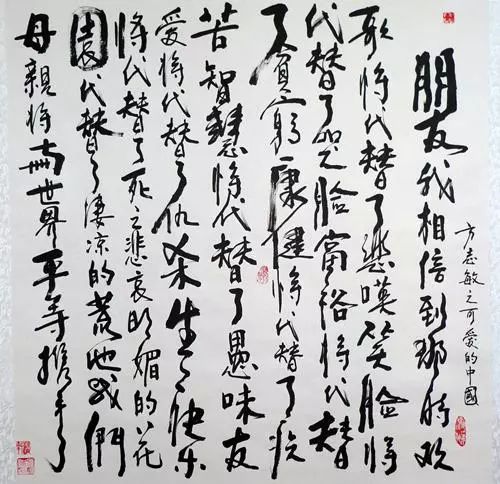 方志敏之可爱的中國
朋友我相信到那时欢
歌将代替了悲嘆笑脸将
代替了哭脸富裕将代替
了貧穷康健将代替了疾
苦智慧将代替了愚味友
爱将代替了仇杀生之快乐
将代替了死之悲哀明媚的花
園代替了凄凉的荒地我們
母親将與世界平等携手了